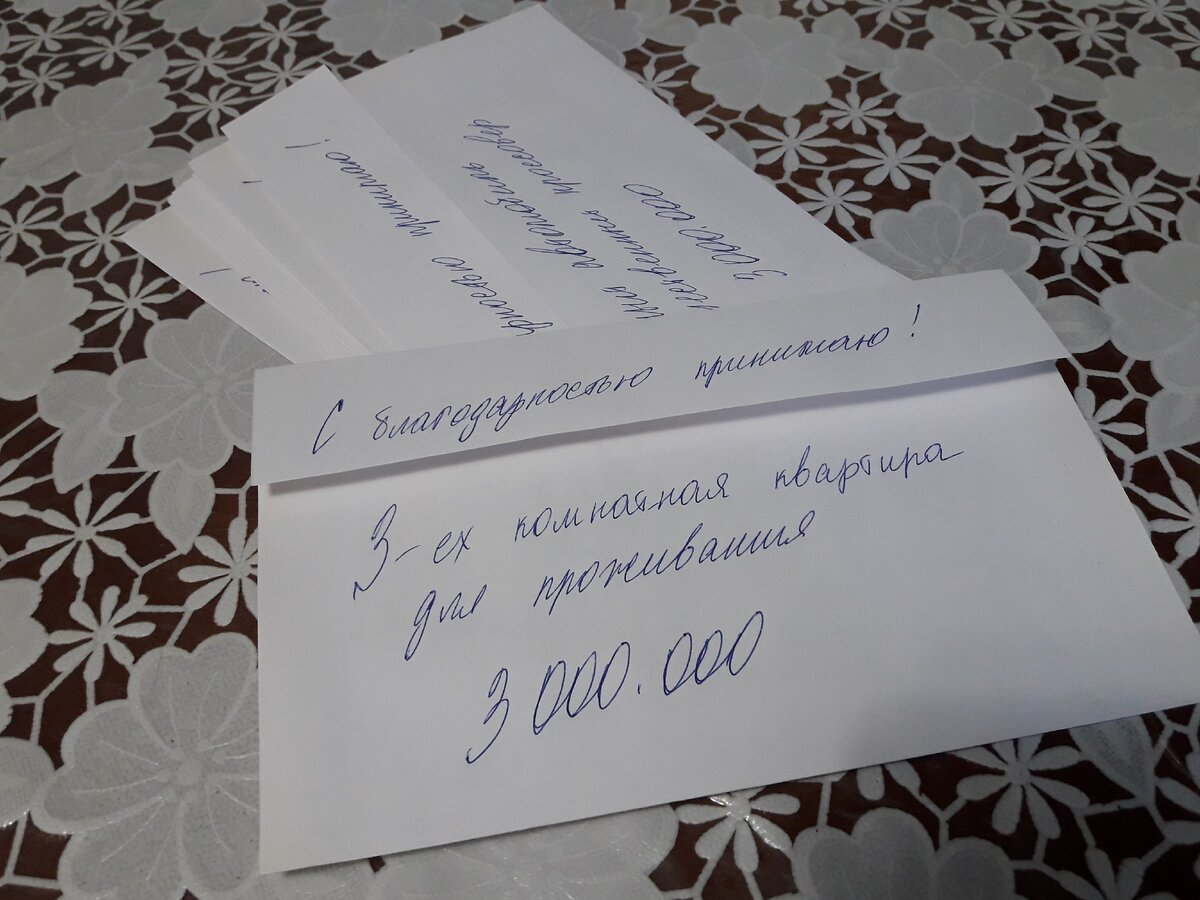 С благодарностью принимаю!
3-ех комнатная квартира
для проживания
3 000.000
принимаю!
автомобиль
3 000.000
!